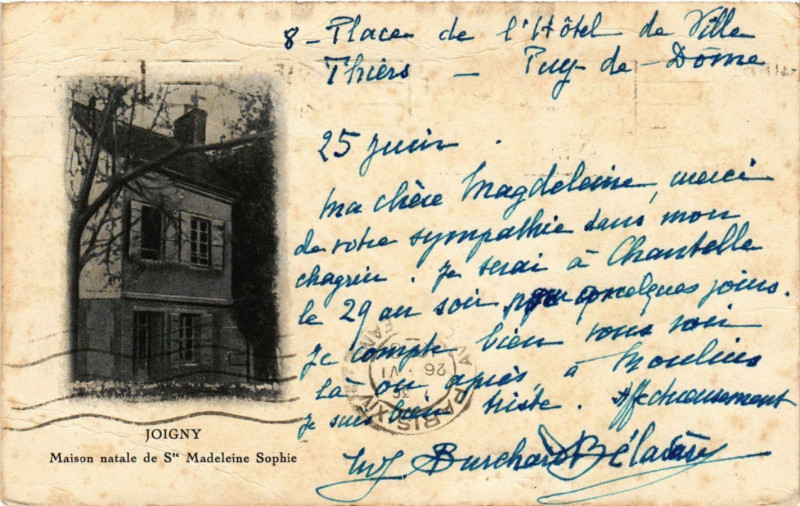 8 - Place de l'Hôtel de Ville
Thiers - Puy-de-Dôme
25 juin.
Ma chère Magdeleine, merci
de votre sympathie dans mon
chagrin. Je serai à Chantelle
le 29 au soir pour quelques jours.
Je compte bien vous voir
là ou après à Moulins
Je suis bien triste. Affectueusement
Burchard Bélavary
PARIS XV
26 VI
JOIGNY
Maison natale de Ste Madeleine Sophie